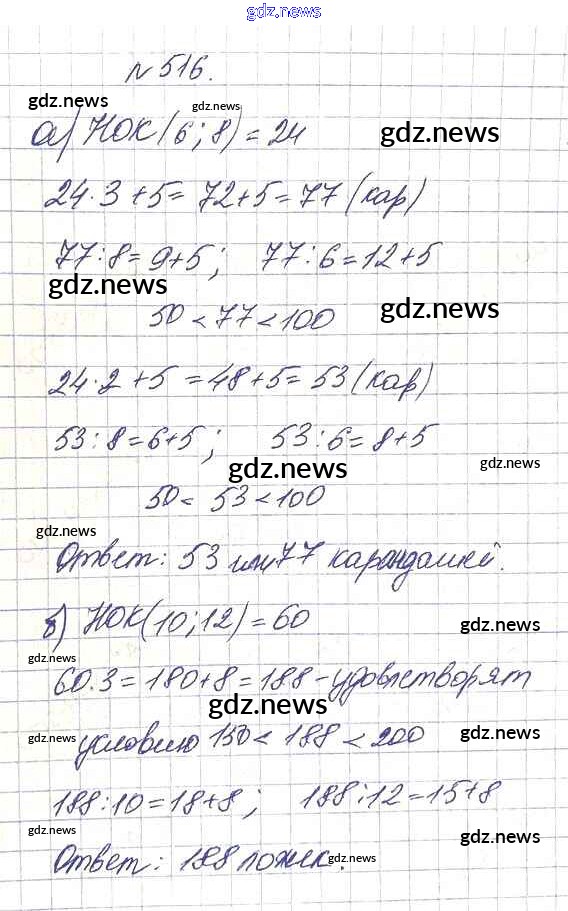 gdz.news
№ 516.
gdz.news gdz.news
а) НОК(6; 8) = 24 gdz.news
24·3 + 5 = 72+5 = 77 (кар)
77:8 = 9+5; 77:6 = 12+5
gdz.news
50 < 77 < 100 gdz.news
24·2 + 5 = 48+5 = 53 (кар)
53:8 = 6+5; 53:6 = 8+5
gdz.news gdz.news
50 < 53 < 100
gdz.news
Ответ: 53 или 77 карандашей.
б) НОК(10; 12) = 60 gdz.news
gdz.news
60·3 = 180+8 = 188 - удовлетворят
gdz.news
gdz.news условию 150 < 188 < 200 gdz.news
188:10 = 18+8; 188:12 = 15+8
gdz.news gdz.news
Ответ: 188 ложек. gdz.news
gdz.news